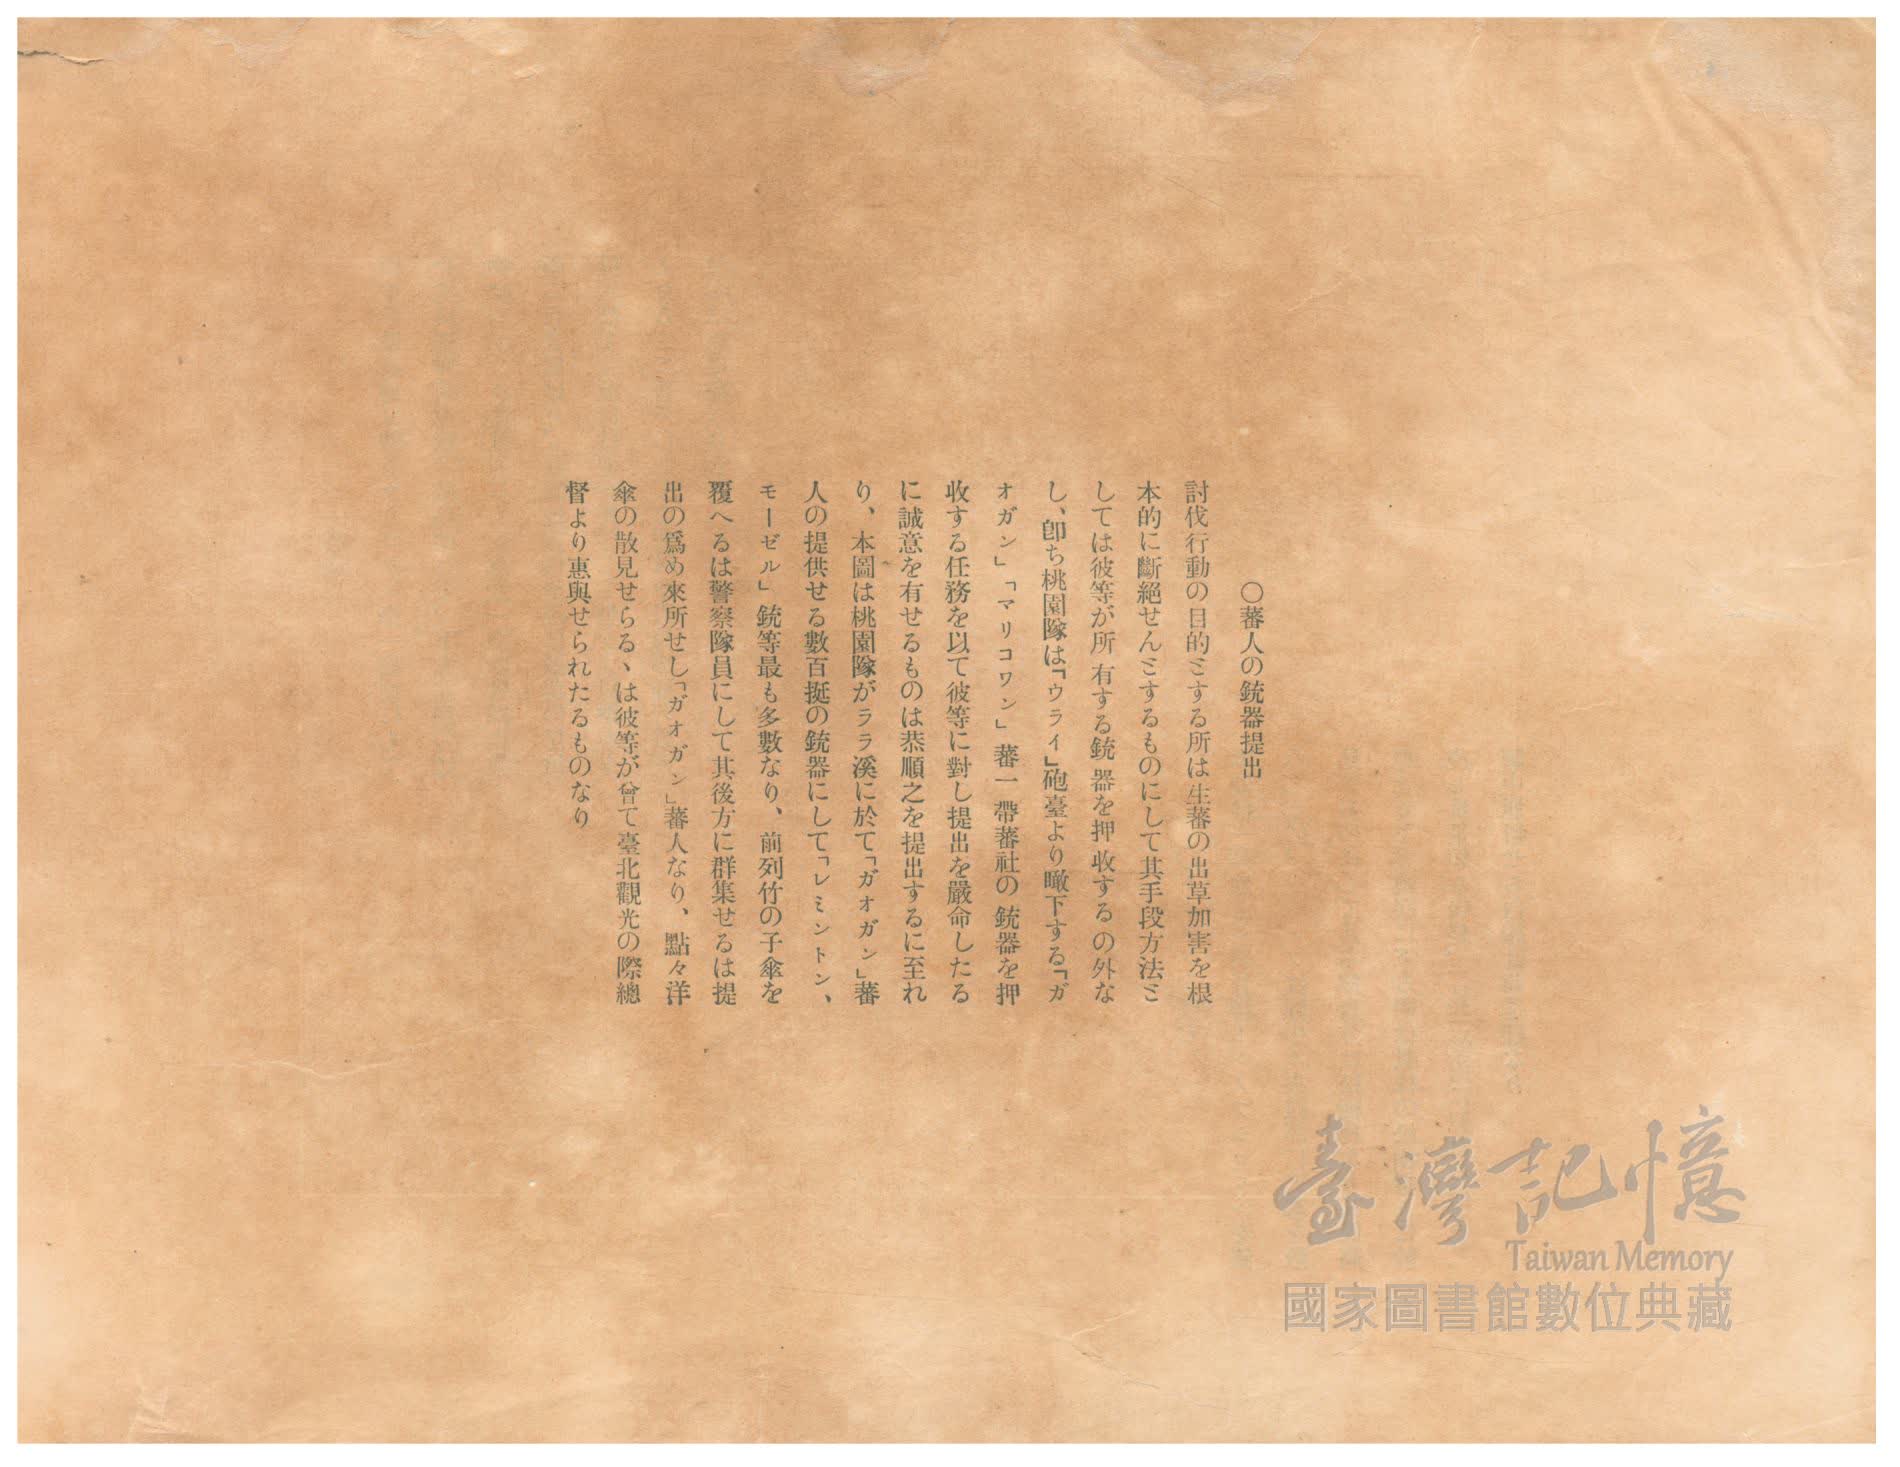 〇蕃人の銃器提出
討伐行動の目的とする所は生蕃の出草加害を根
本的に斷絕せんとするものにして其手段方法と
しては彼等が所有する銃器を押收するの外な
し、卽ち桃園隊は「ウライ」砲臺より瞰下する「ガ
オガン」「マリコワン」蕃一帶蕃社の銃器を押
收する任務を以て彼等に對し提出を嚴命したる
に誠意を有せるものは恭順之を提出するに至れ
り、本圖は桃園隊がララ溪に於て「ガオガン」蕃
人の提供せる數百挺の銃器にして「レミントン、
モーゼル」銃等最も多數なり、前列竹の子傘を
覆へるは警察隊員にして其後方に群集せるは提
出の爲め來所せし「ガオガン」蕃人なり、點々洋
傘の散見せらるゝは彼等が曾て臺北觀光の際總
督より惠與せられたるものなり
臺灣記憶
Taiwan Memory
國家圖書館數位典藏